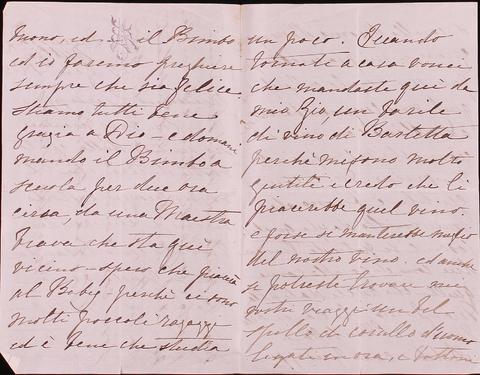 buono, ed il Bimbo
ed io faremo preghiere
sempre che sia felice
Stiamo tutti bene
grazia a Dio - e domani
mando il Bimbo a
scuola per due ore
circa, da una Maestra
brava che sta qui
vicino - spero che piacerà
al Baby - perchè ci sono
molti piccoli ragazzi
ed è bene che studia
un poco. Quando
tornate a casa vorrei
che mandaste qui da
mio Zio, un barile
di vino di Barletta
perchè mi sono molto
gentili e credo che li
piacerebbe quel vino.
e forse si manterebbe meglio
del nostro vino. ed anche
se potreste trovare nei
vostri viaggi un bel
di cavallo d'uomo
legati in osa, e bottoni